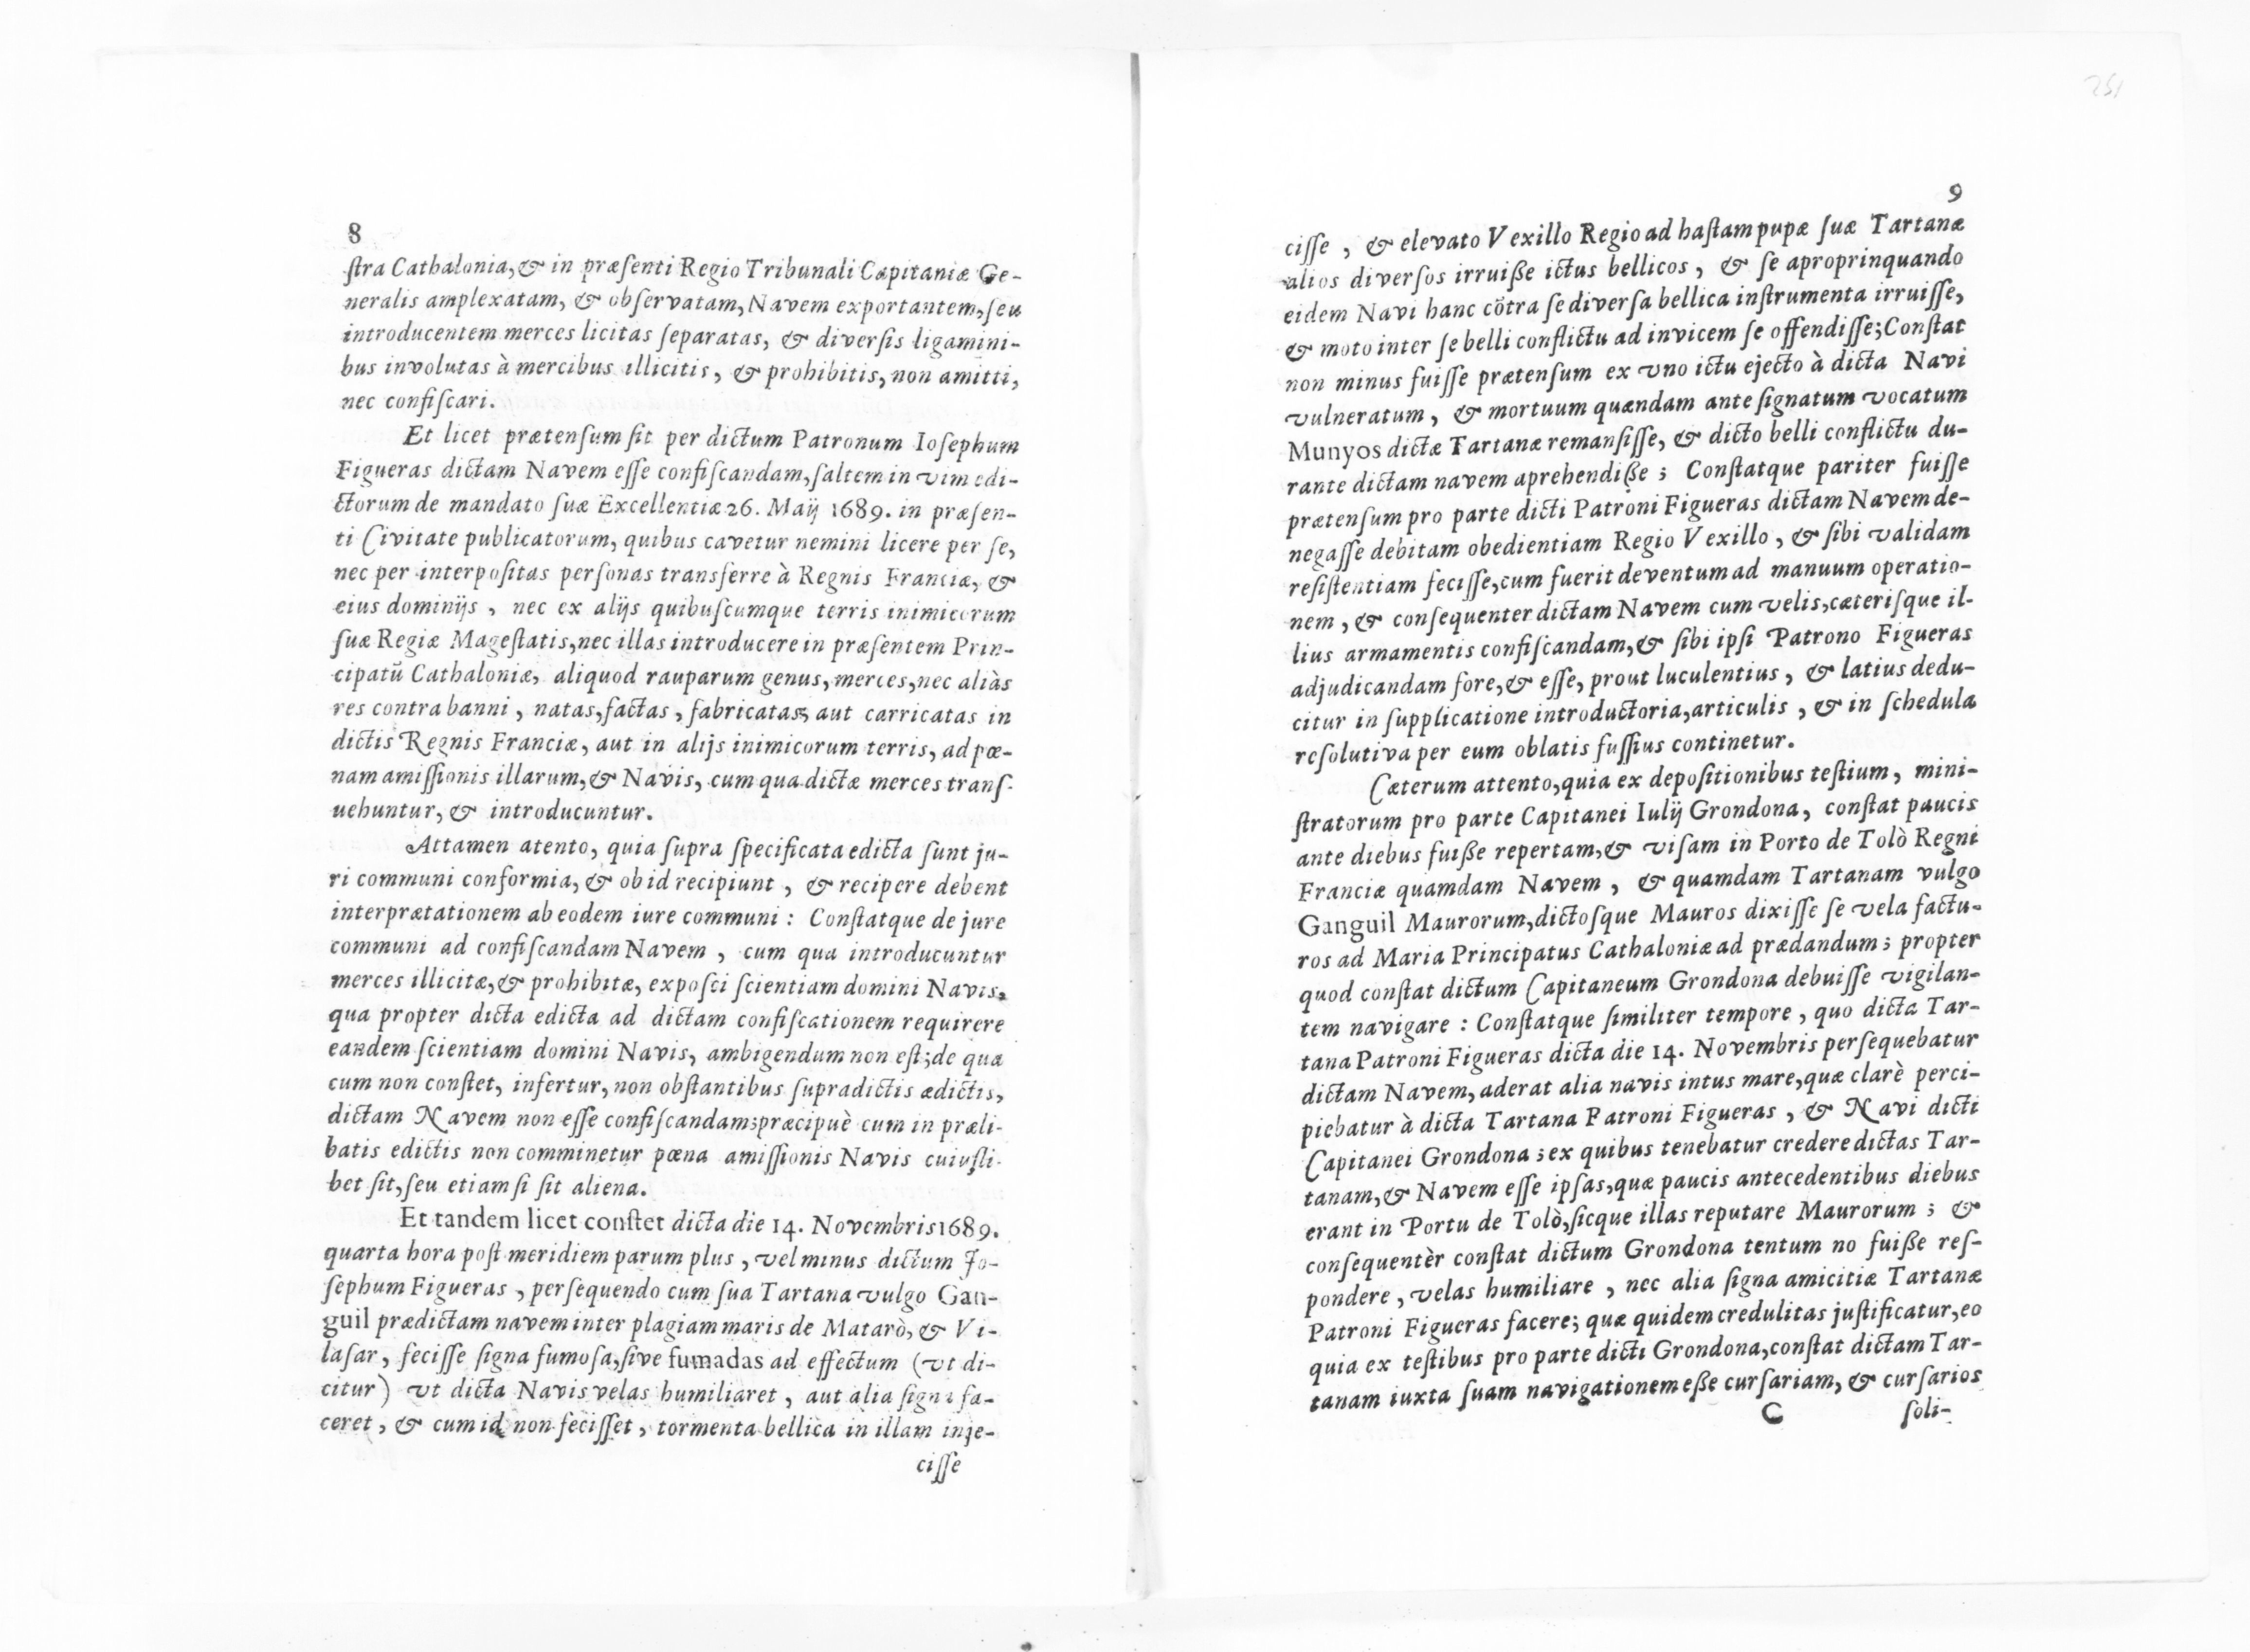 8
ſtra Cathalonia, & in præſenti Regio Tribunali Capitaniæ Ge-
neralis amplexatam, & obſervatam, Navem exportantem, ſeu
introducentem merces licitas ſeparatas, & diverſis ligamini-
bus involutas à mercibus illicitis, & prohibitis, non amitti,
nec confiſcari.
Et licet prætenſum ſit per dictum Patronum Ioſephum
Figueras dictam Navem eſſe confiſcandam, ſaltem in vim edi-
ctorum de mandato ſuæ Excellentiæ 26. Maij 1689. in præſen-
ti Civitate publicatorum, quibus cavetur nemini licere per ſe,
nec per interpoſitas perſonas transferre à Regnis Franciæ, &
eius dominijs, nec ex alijs quibuſcumque terris inimicorum
ſuæ Regiæ Mageſtatis, nec illas introducere in præſentem Prin-
cipatũ Cathaloniæ, aliquod rauparum genus, merces, nec aliàs
res contrabanni, natas, factas, fabricatas, aut carricatas in
dictis Regnis Franciæ, aut in alijs inimicorum terris, ad pœ-
nam amiſſionis illarum, & Navis, cum qua dictæ merces tranſ-
uehuntur, & introducuntur.
Attamen atento, quia ſupra ſpecificata edicta ſunt ju-
ri communi conformia, & ob id recipiunt, & recipere debent
interprætationem ab eodem iure communi: Conſtatque de jure
communi ad confiſcandam Navem, cum qua introducuntur
merces illicitæ, & prohibitæ, expoſci ſcientiam domini Navis,
qua propter dicta edicta ad dictam confiſcationem requirere
eandem ſcientiam domini Navis, ambigendum non eſt; de qua
cum non conſtet, infertur, non obſtantibus ſupradictis ædictis,
dictam Navem non eſſe confiſcandam; præcipuè cum in præli-
batis edictis non comminetur pœna amiſſionis Navis cuiuſli-
bet ſit, ſeu etiam ſi ſit aliena.
Et tandem licet conſtet dicta die 14. Novembris 1689.
quarta hora poſt meridiem parum plus, vel minus dictum Jo-
ſephum Figueras, perſequendo cum ſua Tartana vulgo Gan-
guil prædictam navem inter plagiam maris de Matarò, & Vi-
laſar, feciſſe ſigna fumoſa, ſive fumadas ad effectum (vt di-
citur) vt dicta Navis velas humiliaret, aut alia ſigna fa-
ceret, & cum id non feciſſet, tormenta bellica in illam inje-
ciſſe
251
9
ciſſe, & elevato Vexillo Regio ad haſtam pupæ ſuæ Tartanæ
alios diverſos irruiße ictus bellicos, & ſe aproprinquando
eidem Navi hanc cõtra ſe diverſa bellica inſtrumenta irruiſſe,
& moto inter ſe belli conflictu ad invicem ſe offendiſſe; Conſtat
non minus fuiſſe prætenſum ex vno ictu ejecto à dicta Navi
vulneratum, & mortuum quændam ante ſignatum vocatum
Munyos dictæ Tartanæ remanſiſſe, & dicto belli conflictu du-
rante dictam navem aprehendiße; Conſtatque pariter fuiſſe
prætenſum pro parte dicti Patroni Figueras dictam Navem de-
negaſſe debitam obedientiam Regio Vexillo, & ſibi validam
reſiſtentiam feciſſe, cum fuerit deventum ad manuum operatio-
nem, & conſequenter dictam Navem cum velis, cæteriſque il-
lius armamentis confiſcandam, & ſibi ipſi Patrono Figueras
adjudicandam fore, & eſſe, prout luculentius, & latius dedu-
citur in ſupplicatione introductoria, articulis, & in ſchedula
reſolutiva per eum oblatis fuſſius continetur.
Cæterum attento, quia ex depoſitionibus teſtium, mini-
ſtratorum pro parte Capitanei Iulij Grondona, conſtat paucis
ante diebus fuiße repertam, & viſam in Porto de Tolò Regni
Franciæ quamdam Navem, & quamdam Tartanam vulgo
Ganguil Maurorum, dictoſque Mauros dixiſſe ſe vela factu-
ros ad Maria Principatus Cathaloniæ ad prædandum; propter
quod conſtat dictum Capitaneum Grondona debuiſſe vigilan-
tem navigare: Conſtatque ſimiliter tempore, quo dicta Tar-
tana Patroni Figueras dicta die 14. Novembris perſequebatur
dictam Navem, aderat alia navis intus mare, quæ clarè perci-
piebatur à dicta Tartana Patroni Figueras, & Navi dicti
Capitanei Grondona; ex quibus tenebatur credere dictas Tar-
tanam, & Navem eſſe ipſas, quæ paucis antecedentibus diebus
erant in Portu de Tolò, ſicque illas reputare Maurorum; &
conſequentèr conſtat dictum Grondona tentum no fuiße reſ-
pondere, velas humiliare, nec alia ſigna amicitiæ Tartanæ
Patroni Figueras facere; quæ quidem credulitas juſtificatur, eo
quia ex teſtibus pro parte dicti Grondona, conſtat dictam Tar-
tanam iuxta ſuam navigationem eße curſariam, & curſarios
C ſoli-